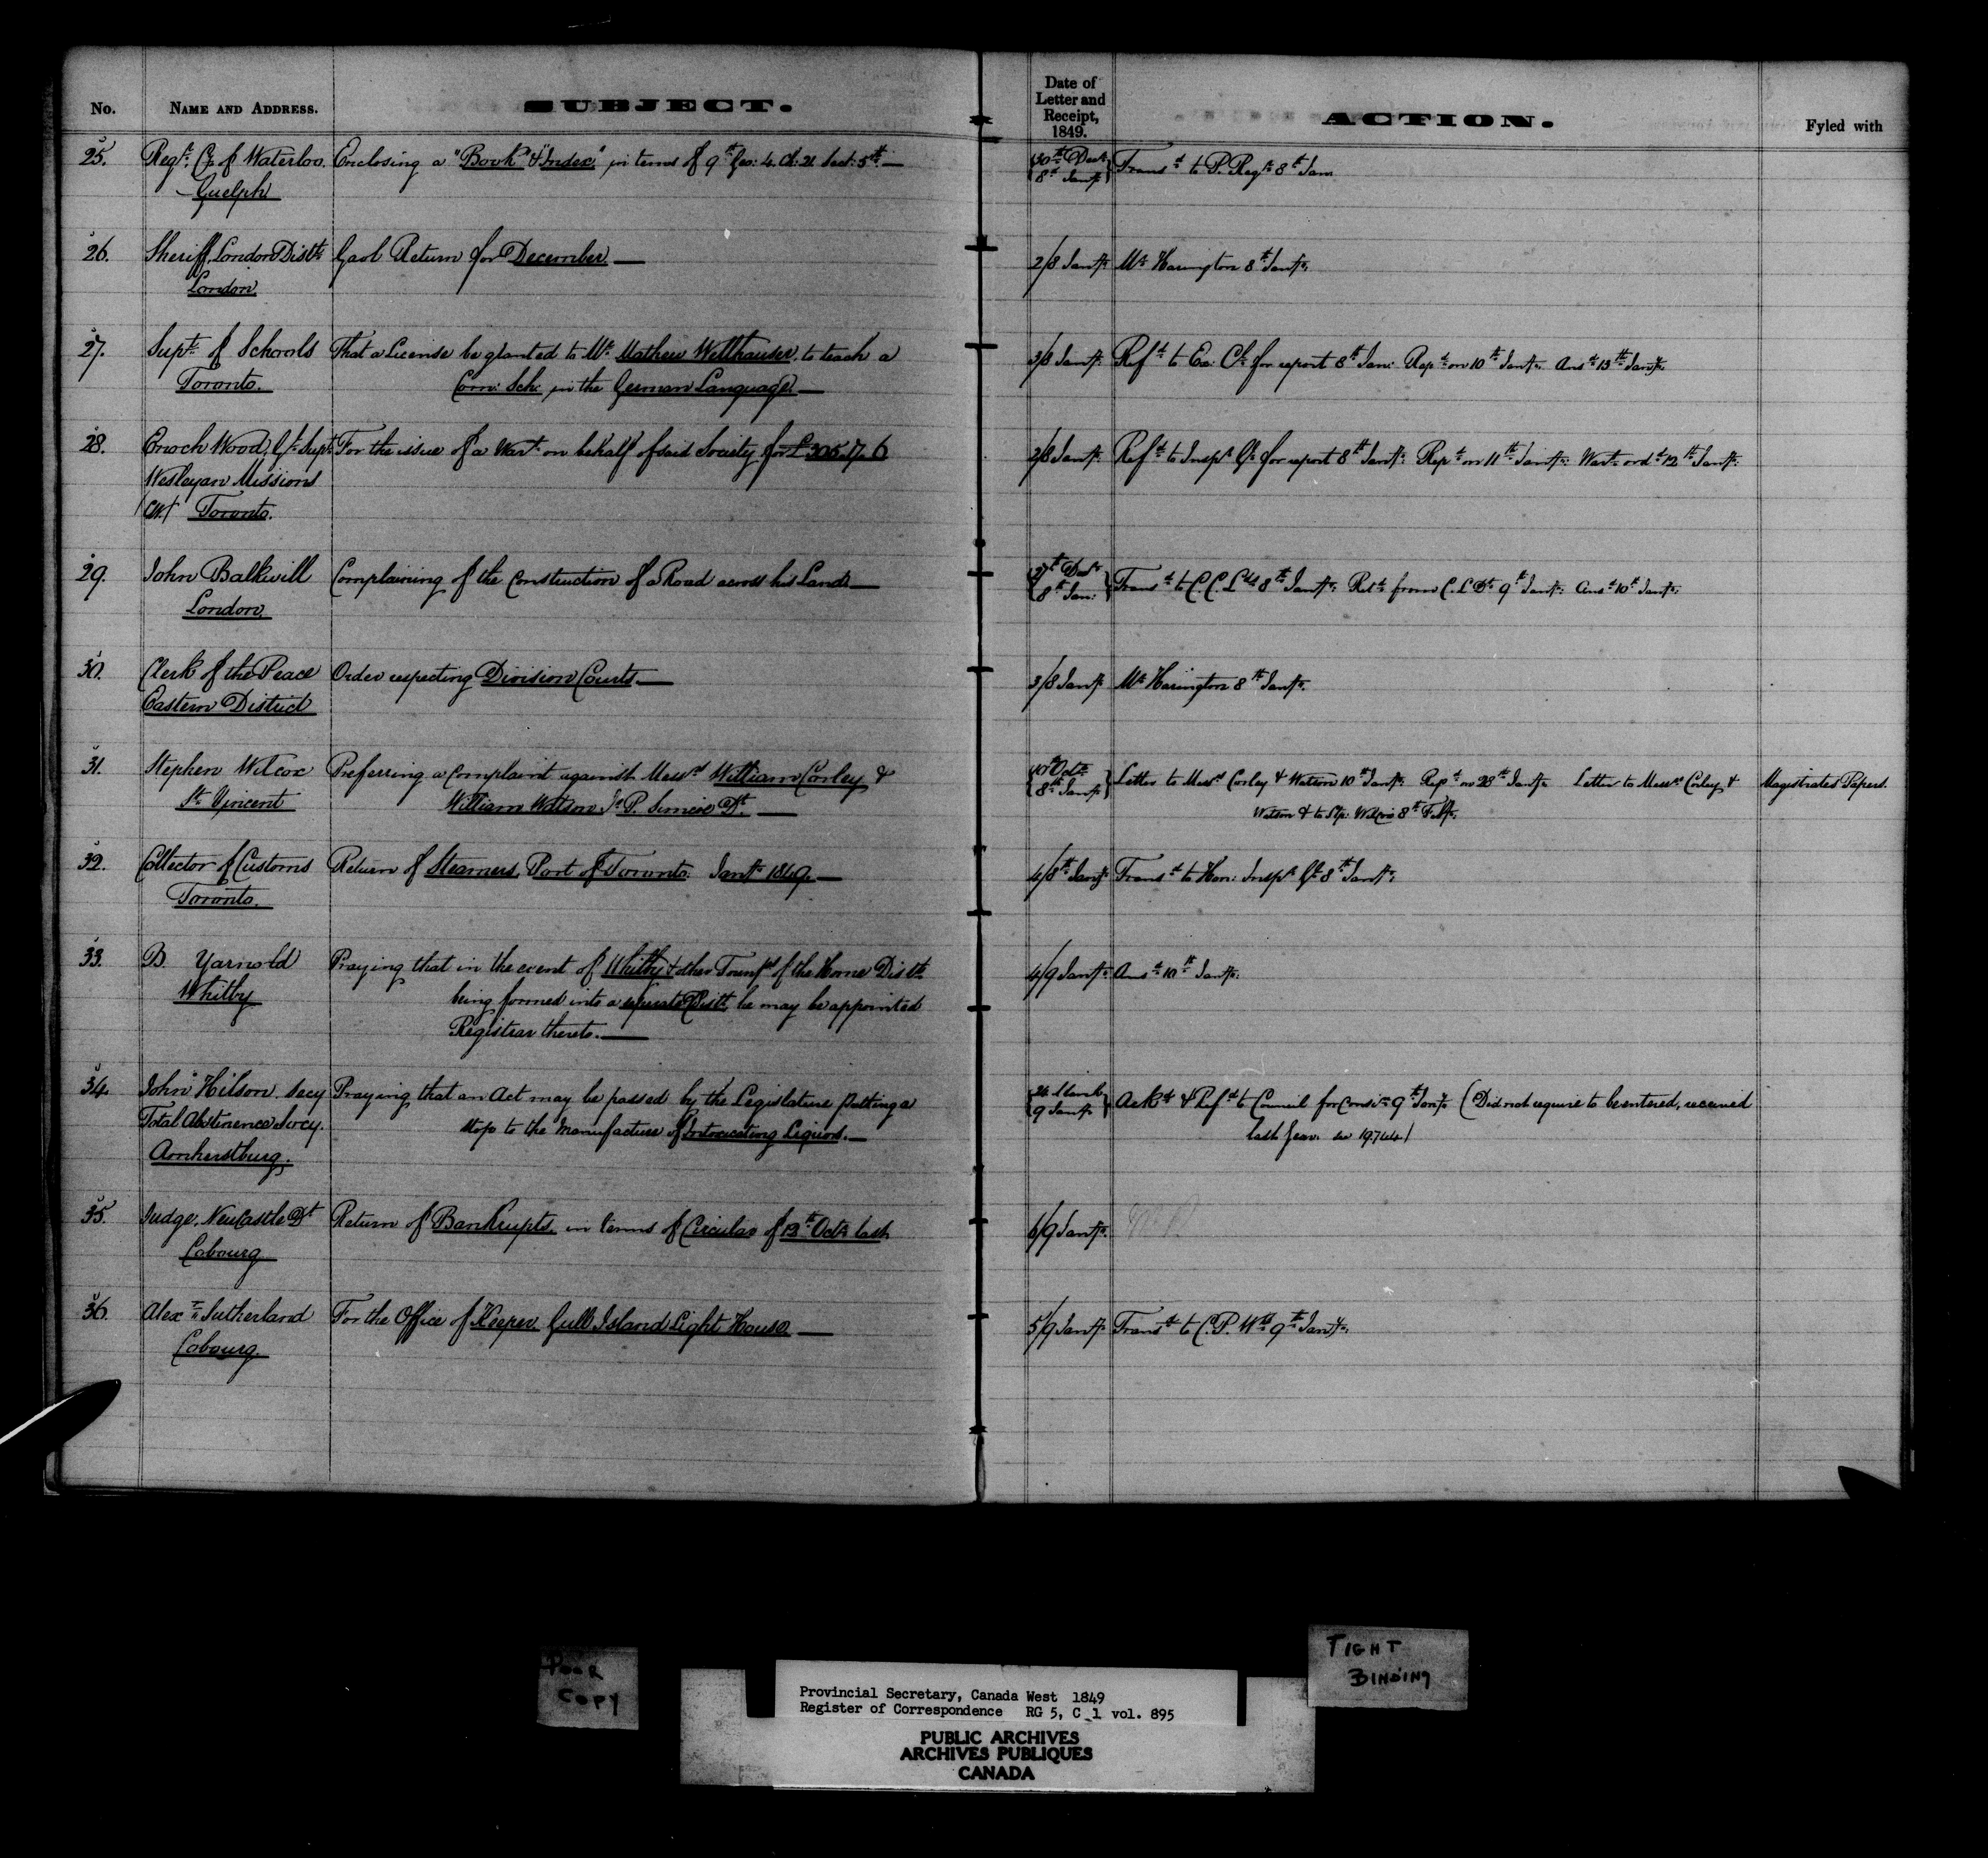 No. NAME AND ADDRESS. SUBJECT. Date of Letter and Receipt, 1849. ACTION. Fyled with
25. Regr. Co. of Waterloo. Enclosing a "Book" & "Index" in terms of 9th Geo: 4. Ch: 21 Sect: 5th — 30th Decr. Transd. to P. Regr. 8th Jan.
Guelph 8th Jany.
26. Sheriff, London Distt. Gaol Return for December — 2/8 Jany. Mr. Harington 8th Jany.
London
27. Supt. of Schools That a License be granted to Mr. Mathew Wellhauser, to teach a 3/8 Jany. Refd. to Ex: Cl. for report 8th Jan: Repd. on 10th Jany. Ansd. 13th Jany.
Toronto. Com: Sch: in the German Language —
28. Enoch Wood, Gl. Supt. For the issue of a Wart. on behalf of said Society for £305.17.6 2/8 Jany. Refd. to Inspr. Gl. for report 8th Jany. Repd. on 11th Jany. Wart. ord. 12th Jany.
Wesleyan Missions
(CW.) Toronto.
29. John Balkwill Complaining of the construction of a Road across his Land — 27th Decr. Transd. to C. C. Lds. 8th Jany. Retd. from C. L. Dt. 9th Jany. Ansd. 10th Jany.
London 8th Jan:
30. Clerk of the Peace Order respecting Division Courts. — 3/8 Jany. Mr. Harington 8th Jany.
Eastern District
31. Stephen Wilcox Preferring a complaint against Messrs. William Corley & 10th Octr. Letter to Messrs. Corley & Watson 10th Jany. Repd. on 28th Jany. Letter to Messrs. Corley & Magistrates Papers.
St. Vincent William Watson, Js. P. Simcoe Dt. — 8th Jany. Watson & to Stp: Wilcox 8th Feby.
32. Collector of Customs Return of Steamers, Port of Toronto. Jany. 1849 — 4/8th Jany. Transd. to Hon: Inspr. Gl. 8th Jany.
Toronto.
33. B. Yarnold Praying that in the event of Whitby & other Townps. of the Home Distt. 4/9 Jany. Ansd. 10th Jany.
Whitby being formed into a separate Distt. he may be appointed
Registrar thereto. —
34. John Hilson, Secy Praying that an Act may be passed by the Legislature putting a 24 March Ackd. & Refd. to Council for Consin. 9th Jany. (Did not require to be entered, received
Total Abstinence Socy. stop to the manufacture of Intoxicating Liquors. — 9 Jany. last year. see 19744)
Amherstburg.
35. Judge, Newcastle Dt. Return of Bankrupts, in terms of Circular of 13th Octr. last. 6/9 Jany.
Cobourg
36. Alexr. Sutherland For the Office of Keeper, Gull Island Light House — 5/9 Jany. Transd. to C. P. Wks. 9th Jany.
Cobourg.
POOR
COPY
TIGHT
BINDING
Provincial Secretary, Canada West 1849
Register of Correspondence RG 5, C 1 vol. 895
PUBLIC ARCHIVES
ARCHIVES PUBLIQUES
CANADA